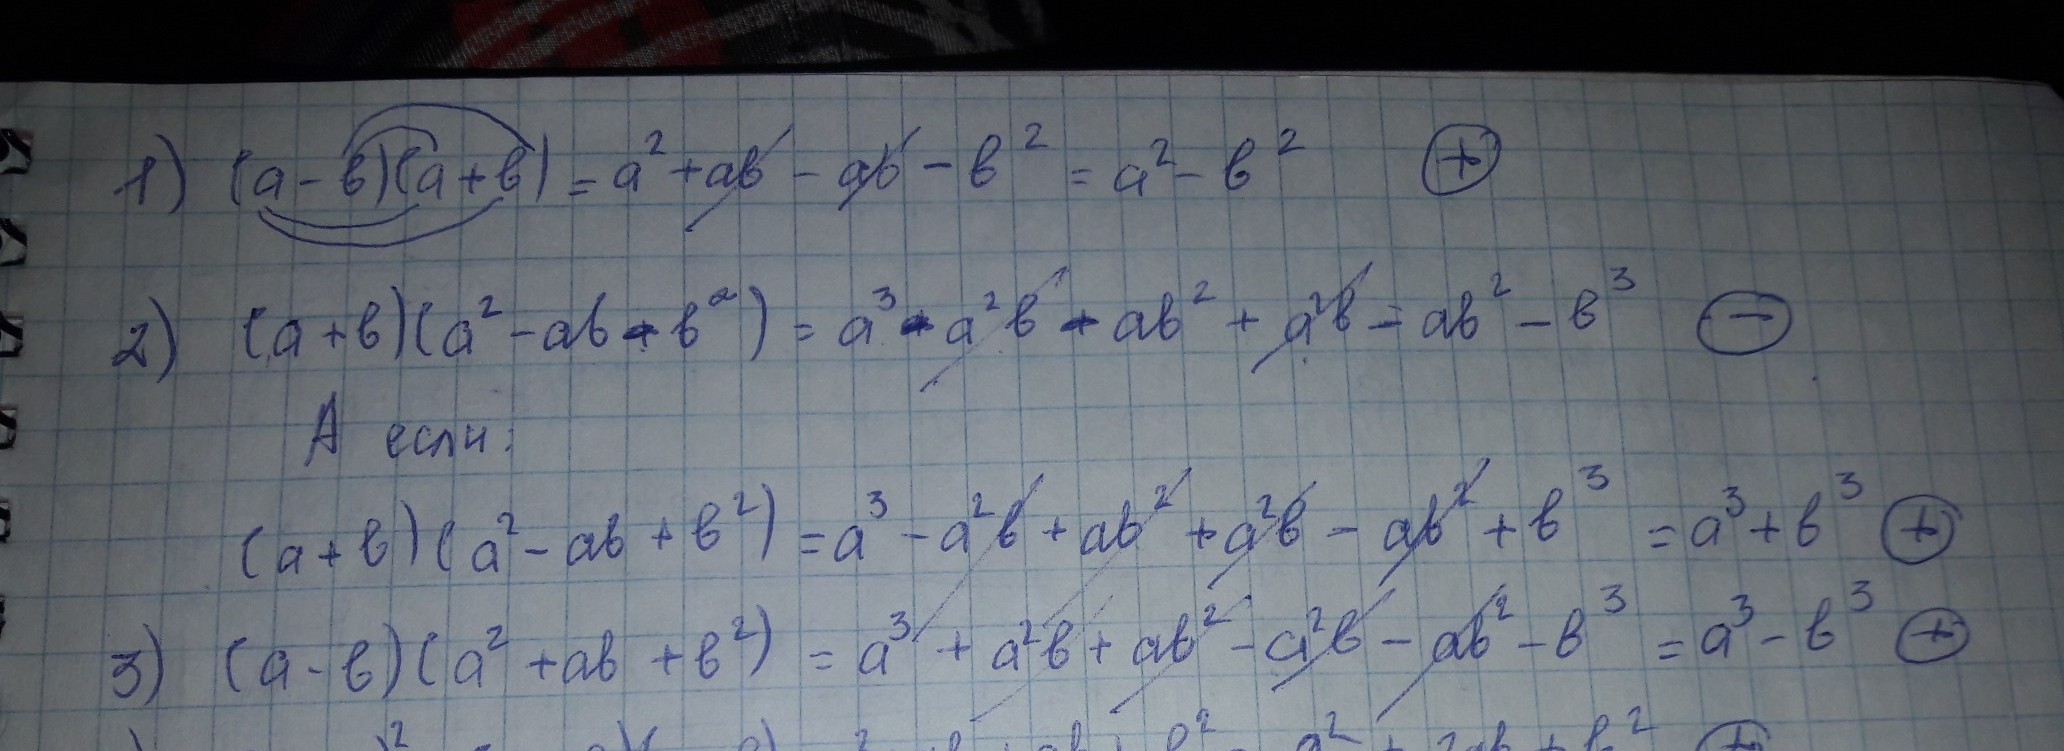 1) (a - b)(a + b) = a² + ab - ab - b² = a² - b² (+)
2) (a + b)(a² - ab - b²) = a³ - a²b - ab² + a²b - ab² - b³ (-)
А если:
(a + b)(a² - ab + b²) = a³ - a²b + ab² + a²b - ab² + b³ = a³ + b³ (+)
3) (a - b)(a² + ab + b²) = a³ + a²b + ab² - a²b - ab² - b³ = a³ - b³ (+)